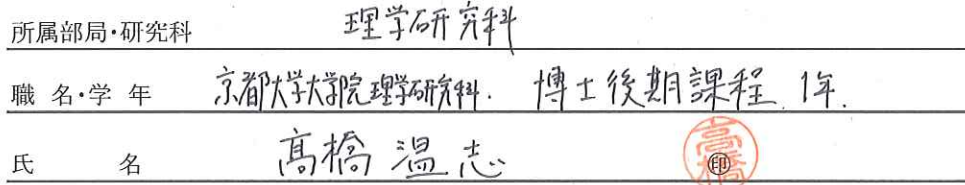 所属部局・研究科 理学研究科
職名・学年 京都大学大学院理学研究科. 博士後期課程. 1年.
氏名 髙橋 温志 ㊞ 高橋